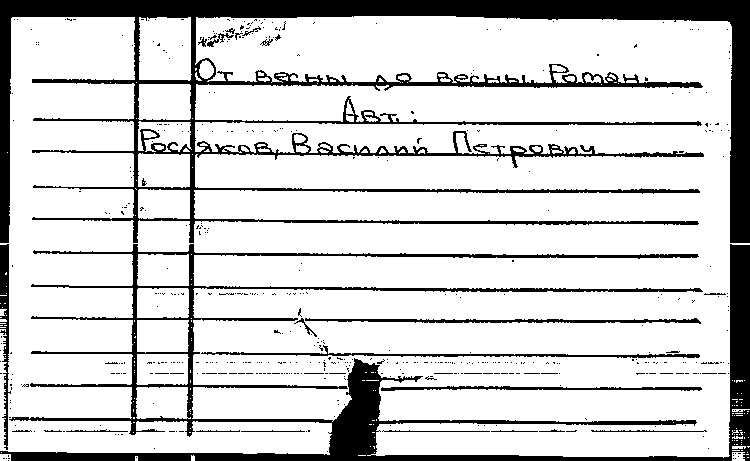 От весны до весны. Роман.
Авт.:
Росляков, Василий Петрович